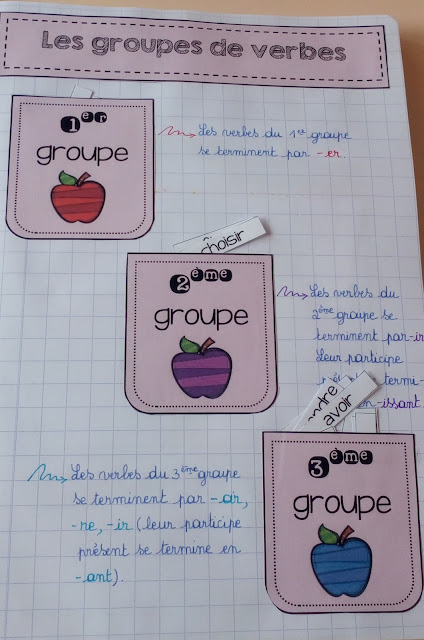 Les groupes de verbes
1er
groupe
Les verbes du 1er groupe
se terminent par -er.
choisir
2ème
groupe
Les verbes du
2ème groupe se
terminent par -ir
Leur participe
termi-
-issant
avoir
3ème
groupe
Les verbes du 3ème groupe
se terminent par -oir,
-re, -ir (leur participe
présent se termine en
-ant).